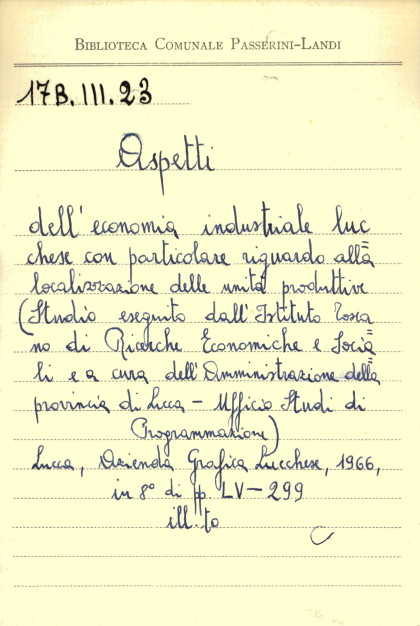 BIBLIOTECA COMUNALE PASSERINI-LANDI
17B.III.23
Aspetti
dell'economia industriale luc
chese con particolare riguardo alla=
localizzazione delle unità produttive
(Studio eseguito dall'Istituto Tosca
no di Ricerche Economiche e Socia=
li e a cura dell'Amministrazione della=
provincia di Lucca - Ufficio Studi di
Programmazione)
Lucca, Azienda Grafica Lucchese, 1966,
in 8° di pp. LV-299
ill.to